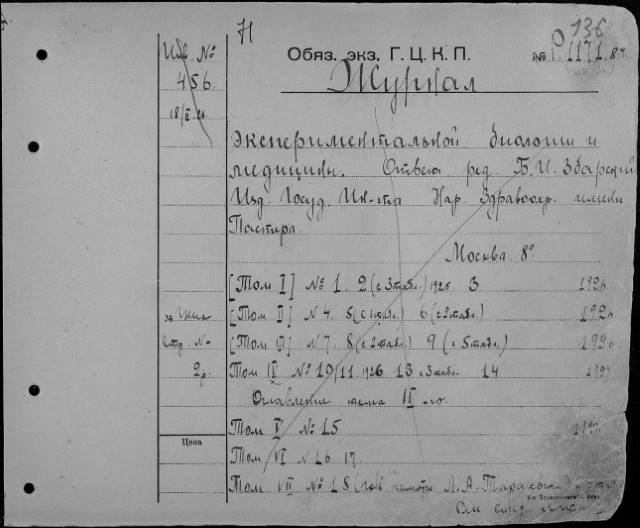 Н
136
Инв. №
456.
Обяз. экз. Г. Ц. К. П.
№ 1171
Журнал
экспериментальной биологии и
медицины. Ответ. ред. Б. И. Збарский
Изд. Госуд. Ин-та Нар. Здравоохр. имени
Пастера.
Москва. 8°.
[Том I] № 1. 2 (с 3 табл.) 1925 3 1926.
[Том II] № 4. 5 (с 1 табл.) 6 (с 2 табл.) 1926
[Том III] № 7. 8 (с 2 табл.) 9 (с 5 табл.) 1926
Том IV № 10/11 1926 13 с 3 табл. 14 1927
Оглавление тома IV-го.
Том V № 15
Цена
Том VI № 16 17
Том VII № 18 памяти Л. А. Тарасевича